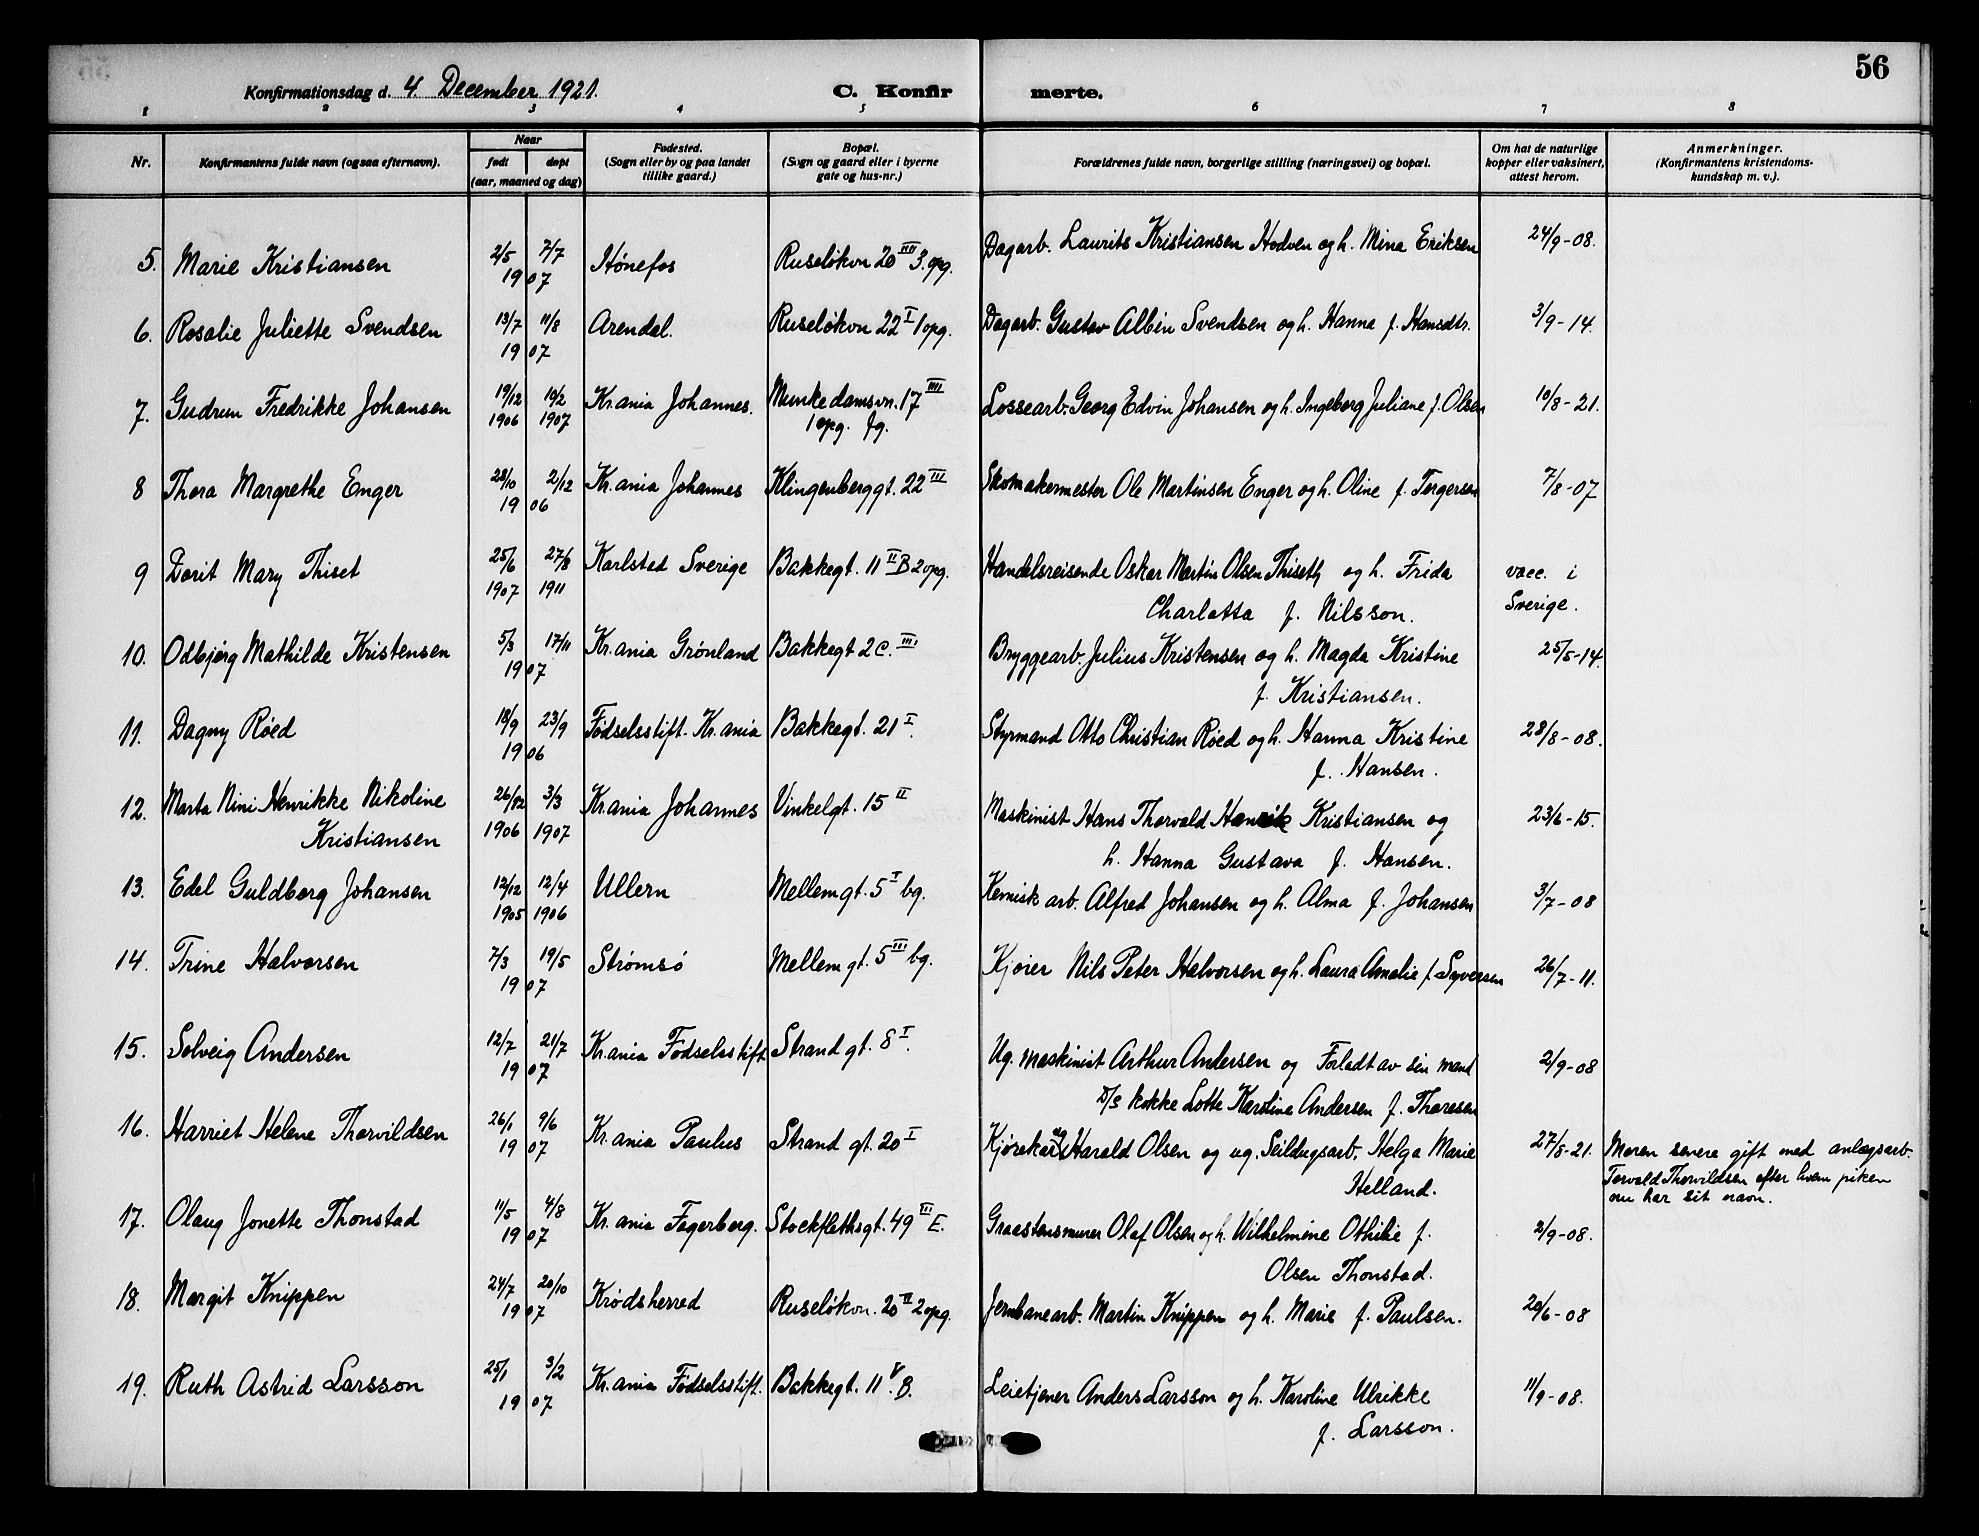 56
Konfirmationsdag d. 4. December 1921.
C. Konfir merte.
1 2 3 4 5 6 7 8
Nr.
Konfirmantens fulde navn (ogsaa efternavn).
Naar
født døpt
(aar, maaned og dag)
Fødested.
(Sogn eller by og paa landet
tillike gaard.)
Bopæl.
(Sogn og gaard eller i byerne
gate og hus-nr.)
Forældrenes fulde navn, borgerlige stilling (næringsvei) og bopæl.
Om hat de naturlige
kopper eller vaksinert,
attest herom.
Anmerkninger.
(Konfirmantens kristendoms-
kundskap m. v.).
5. Marie Kristiansen 2/5 7/7 Hönefos Ruseløkvn 20 IIII 3. opg. Dagarb. Laurits Kristiansen Hodven og h. Mina Eriksen 24/9-08.
19 07
6. Rosalie Juliette Svendsen 13/7 11/8 Arendal. Ruseløkvn 22 I 1 opg. Dagarb. Gustav Albin Svendsen og h. Hanna f. Hansdtr. 3/9-14.
19 07
7. Gudrun Fredrikke Johansen 19/12 10/2 Kr.ania Johannes. Munkedamsvn. 17 IIII Lossearb. Georg Edvin Johansen og h. Ingeborg Juliane f. Olsen 10/8-21.
1906 1907 1 opg. fg.
8 Thora Margrethe Enger 28/10 2/12 Kr.ania Johannes Klingenberggt. 22 III Skomakermester Ole Martinsen Enger og h. Oline f. Torgersen 7/8-07
19 06
9 Dorit Mary Thiset 25/6 27/8 Karlstad Sverige Bakkegt. 11 II B 2 opg. Handelsreisende Oskar Martin Olsen Thiseth og h. Frida vacc. i
1907 1911 Charlotta f. Nilsson. Sverige.
10. Odbjørg Mathilde Kristensen 5/3 17/11 Kr.ania Grönland Bakkegt 2 C. III Bryggearb. Julius Kristensen og h. Magda Kristine 25/5-14.
19 07 f. Kristiansen.
11. Dagny Röed 18/9 23/9 Födselsstift. Kr.ania Bakkegt. 21 I. Styrmand Otto Christian Röed og h. Hanna Kristine 28/8-08.
19 06 f. Hansen.
12. Marta Nini Henrikke Nikoline 26/12 3/3 Kr.ania Johannes Vinkelgt. 15 II Maskinist Hans Thorvald Henrik Kristiansen og 23/6-15.
Kristiansen 1906 1907 h. Hanna Gustava f. Hansen.
13. Edel Guldborg Johansen 12/12 12/4 Ullern Mellemgt. 5 I bg. Kemisk arb. Alfred Johansen og h. Alma f. Johansen 3/7-08
1905 1906
14. Trine Halvorsen 7/3 19/5 Strömsö Mellemgt. 5 III bg. Kjörer Nils Peter Halvorsen og h. Laura Amalie f. Syversen 26/7-11.
19 07
15. Solveig Andersen 12/7 21/7 Kr.ania Fødselsstift Strandgt. 8 I. Ug. maskinist Arthur Andersen og Forladt av sin mand 2/9-08
19 07 D/S kokke Lotte Karoline Andersen f. Thoresen
16. Harriet Helene Thorvildsen 26/1 9/6 Kr.ania Paulus Strand gt. 20 I Kjörekar Harald Olsen og ug. Seildugsarb. Helga Marie 27/8-21. Moren senere gift med anlægsarb.
19 07 Helland. Torvald Thorvildsen efter hvem piken
nu har sit navn.
17. Olaug Jonette Thonstad 11/5 4/8 Kr.ania Fagerborg. Stockflethsgt. 49 III E. Graastensmurer Olaf Olsen og h. Wilhelmine Othilie f. 2/9-08.
19 07 Olsen Thonstad.
18. Margit Knippen 24/7 20/10 Krødsherred Ruseløkvn. 20 II 2 opg. Jernbanearb. Martin Knippen og h. Marie f. Paulsen. 20/6-08
19 07
19. Ruth Astrid Larsson 25/1 3/2 Kr.ania Fødselsstift. Bakkegt. 11 V B. Leietjener Anders Larsson og h. Karoline Ulrikke 11/9-08.
19 07 f. Larsson.